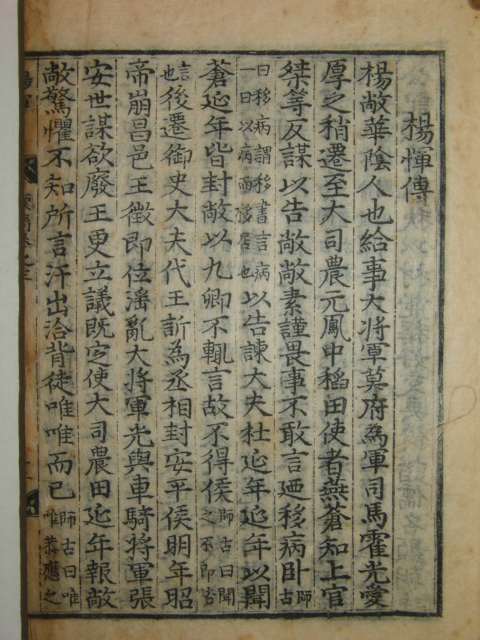 楊惲傳
楊敞華陰人也給事大將軍莫府為軍司馬霍光愛
厚之稍遷至大司農元鳳中稻田使者燕蒼知上官
桀等反謀以告敞敞素謹畏事不敢言廼移病臥師古
曰移病謂移書言病一曰以病而移居也以告諫大夫杜延年延年以聞
蒼延年皆封敞以九卿不輒言故不得侯師古曰聞之不即告
言也後遷御史大夫代王訢為丞相封安平侯明年昭
帝崩昌邑王徵即位淫亂大將軍光與車騎將軍張
安世謀欲廢王更立議既定使大司農田延年報敞
敞驚懼不知所言汗出洽背徒唯唯而已師古曰唯唯恭應之